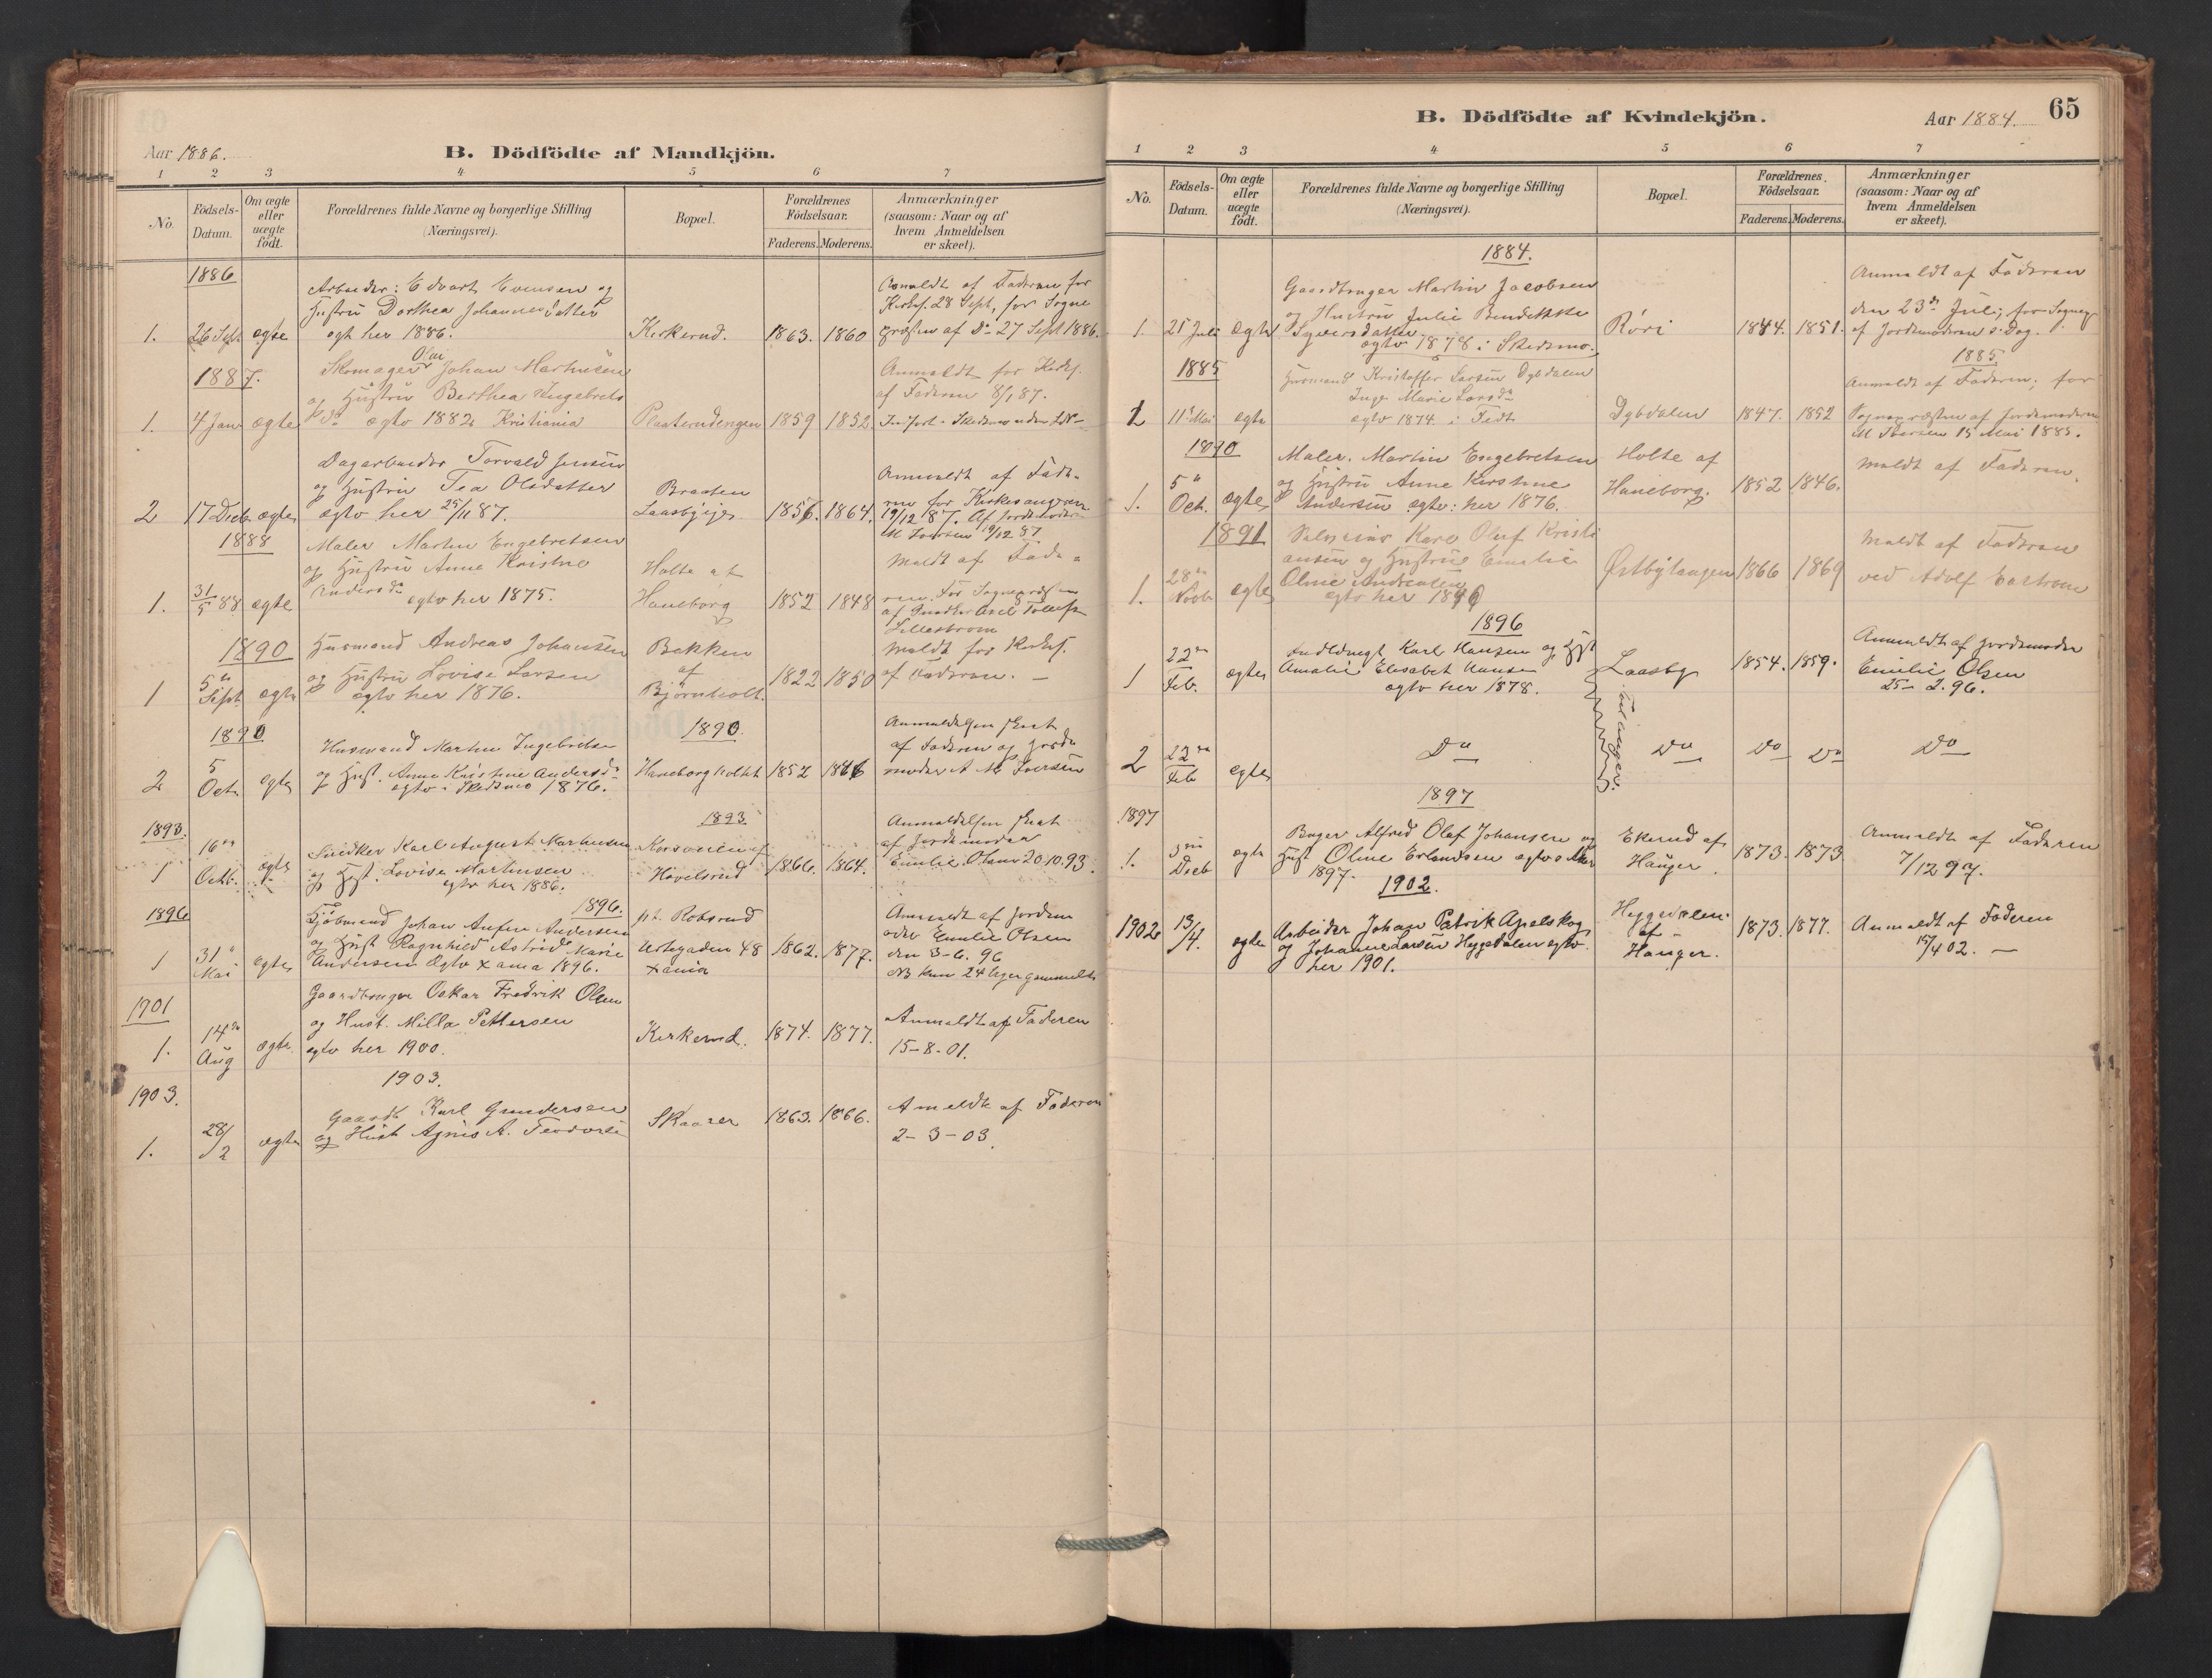 Aar 1886.
B. Dödfödte af Mandkjön.
1 2 3 4 5 6 7
No.
Födsels-
Datum.
Om ægte
eller
uægte
födt.
Forældrenes fulde Navne og borgerlige Stilling
(Næringsvei).
Bopæl.
Forældrenes
Födselsaar.
Faderens. Moderens.
Anmærkninger
(saasom: Naar og af
hvem Anmeldelsen
er skeet).
1886
1. 26 Sept ægte
Arbeider: Edvart Evensen og
Hustru Dorthea Johannesdatter
egt her 1886.
Kirkerud. 1863. 1860
Anmeldt af Faderen for
Kirkes. 28 Sept, for Sogne
præsten af Do 27 Sept 1886.
1887.
1. 4 Jan ægte
Skomager Olav Johan Martinsen
og Hustru Berthea Engebrets
Da egtv 1882 Kristiania
Plaaterudengen 1859 1852
Anmeldt for Kirkes.
af Faderen 8/1 87.
2 17 Dieb ægte
Dagarbeider Torvald Jensen
og Hustru Tea Olsdatter
egtv her 25/11 87.
Braaten
Laasbyeje 1856. 1864.
Anmeldt af Fade-
ren for Kirkesangeren
19/12 87. Af Jordemoder
M Iversen 19/12 87
1888
1. 31/5 88 ægte
Maler Martin Engebretsen
og Hustru Anne Kristine
Andersda egtv her 1875.
Holte af
Haneborg 1852 1848
Meldt af Fade-
ren. For Sognepræsten
Lillestrøm
1890
1 5te Sept ægte
Husmand Andreas Johansen
og Hustru Lovise Larsen
egtv her 1876.
Bakken
af
Bjørnholt. 1822 1850
Meldt for Kirkes.
af Faderen. —
1890
2 5 Octr ægte
Husmand Martin Ingebretsen
og Hust. Anne Kristine Andersda
egtv i Skedsmo 1876.
1890.
Haneborg holtet 1852 1846
Anmeldelsen skeet
af Faderen og Jorde
moder A M Iversen
1893.
1 16de Octb. ægte
Snedker Karl August Martinsen
og Hust. Lovise Martinsen
egtv her 1886.
1893.
af
Hövelsrud 1866. 1864.
Anmeldelsen skeet
af Jordemoder
Emilie Olsen 20.10.93.
1896
1 31te Mai ægte
1896.
Kjøbmand Johan Anfin Andersen
og Hust Ragnhild Astrid Marie
Andersen Egtv Xania 1896.
pt. Robsrud
Urtegaden 48
Xania 1862. 1877.
Anmeldt af Jordem
oder Emilie Olsen
den 3-6. 96
NB kun 24 Uger gammelt
1901
1. 14de Aug ægte.
Gaardbruger Oskar Fredrik Olsen
og Hust. Milla Pettersen
egtv her 1900.
Kirkerud. 1874. 1877.
Anmeldt af Faderen
15-8-01.
1903.
1903.
1. 28/2 ægte
Gaardb Karl Gundersen
og Hust Agnes A.
Skaarer 1863. 1866.
Ameldt af Faderen
2-3-03.
B. Dödfödte af Kvindekjön.
Aar 1884. 65
1 2 3 4 5 6 7
No.
Födsels-
Datum.
Om ægte
eller
uægte
födt.
Forældrenes fulde Navne og borgerlige Stilling
(Næringsvei).
Bopæl.
Forældrenes
Födselsaar.
Faderens. Moderens.
Anmærkninger
(saasom: Naar og af
hvem Anmeldelsen
er skeet).
1884.
1. 21 Juli ægte
Gaardbruger Martin Jacobsen
og Hustru Julie Bendikke
Syversdatter
egtv 1878 i Skedsmo.
Röri 1844. 1851.
Anmeldt af Faderen
den 23de Juli, for Sognep
af Jordemoderen s. Dag.
1885
1885.
1 11te Mai ægte
Husmand Kristoffer Larsen Dybdalen
Inge Marie Larsda
egtv 1874 i Fedt
Dybdalen 1847. 1852
Anmeldt af Faderen; for
Sognepræsten af Jordemoderen
M Iversen 15 Mai 1885.
1890
1. 5te Oct. ægte
Maler. Martin Engebretsen
og Hustru Anne Kirstine
Andersen egtv: her 1876.
Holte af
Haneborg. 1852 1846.
Meldt af Faderen.
1891
1. 28de Novb ægte
Karl Oluf Kristi
ansen og Hustrue Emilie
Oline Andreasen
egtv her 1890
Østbylangen 1866 1869
Meldt af Faderen
ved Adolf
1896
1 22de Feb. ægte
Karl Hansen og Hst
Amalie Elisabet Hansen
egtv her 1878.
Laasby 1854. 1859.
Anmeldt af Jordemoder
Emilie Olsen
25-2.96.
Tvillinger.
2 22de Feb ægte
Do Do Do Do Do
1897
1897
1. 3die Dieb ægte
Bager Alfred Olaf Johansen og
Hust Oline Erlandsen egtv
1897.
Ekerud af
Hauger. 1873. 1873
Anmeldt af Faderen
7/12 97.
1902.
1902 13/4. ægte
Arbeider Johan Patrik Apelskog
og Johanne Larsen Heggedalen egtv.
her 1901.
Heggedalen
af
Hauger. 1873. 1877.
Anmeldt af Faderen
15/4 02. —